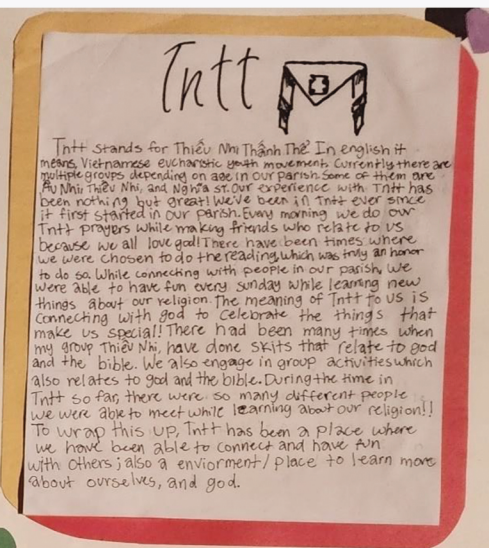 Tntt
Tntt stands for Thiếu Nhi Thánh Thể In english it
means, Vietnamese eucharistic youth movement. Currently there are
multiple groups depending on age in our parish. Some of them are
Ấu Nhi, Thiếu Nhi, and Nghĩa sĩ. Our experience with Tntt has
been nothing but great! We've been in Tntt ever since
it first started in our parish. Every morning we do our
Tntt prayers while making friends who relate to us
because we all love god! There have been times where
we were chosen to do the reading, which was truly an honor
to do so. While connecting with people in our parish, we
were able to have fun every sunday while learning new
things about our religion. The meaning of Tntt to us is
connecting with god to celebrate the things that
make us special!! There had been many times when
my group Thiếu Nhi, have done skits that relate to god
and the bible. We also engage in group activities which
also relates to god and the bible. During the time in
Tntt so far, there were so many different people
we were able to meet while learning about our religion!!
To wrap this up, Tntt has been a place where
we have been able to connect and have fun
with others; also a enviorment/place to learn more
about ourselves, and god.